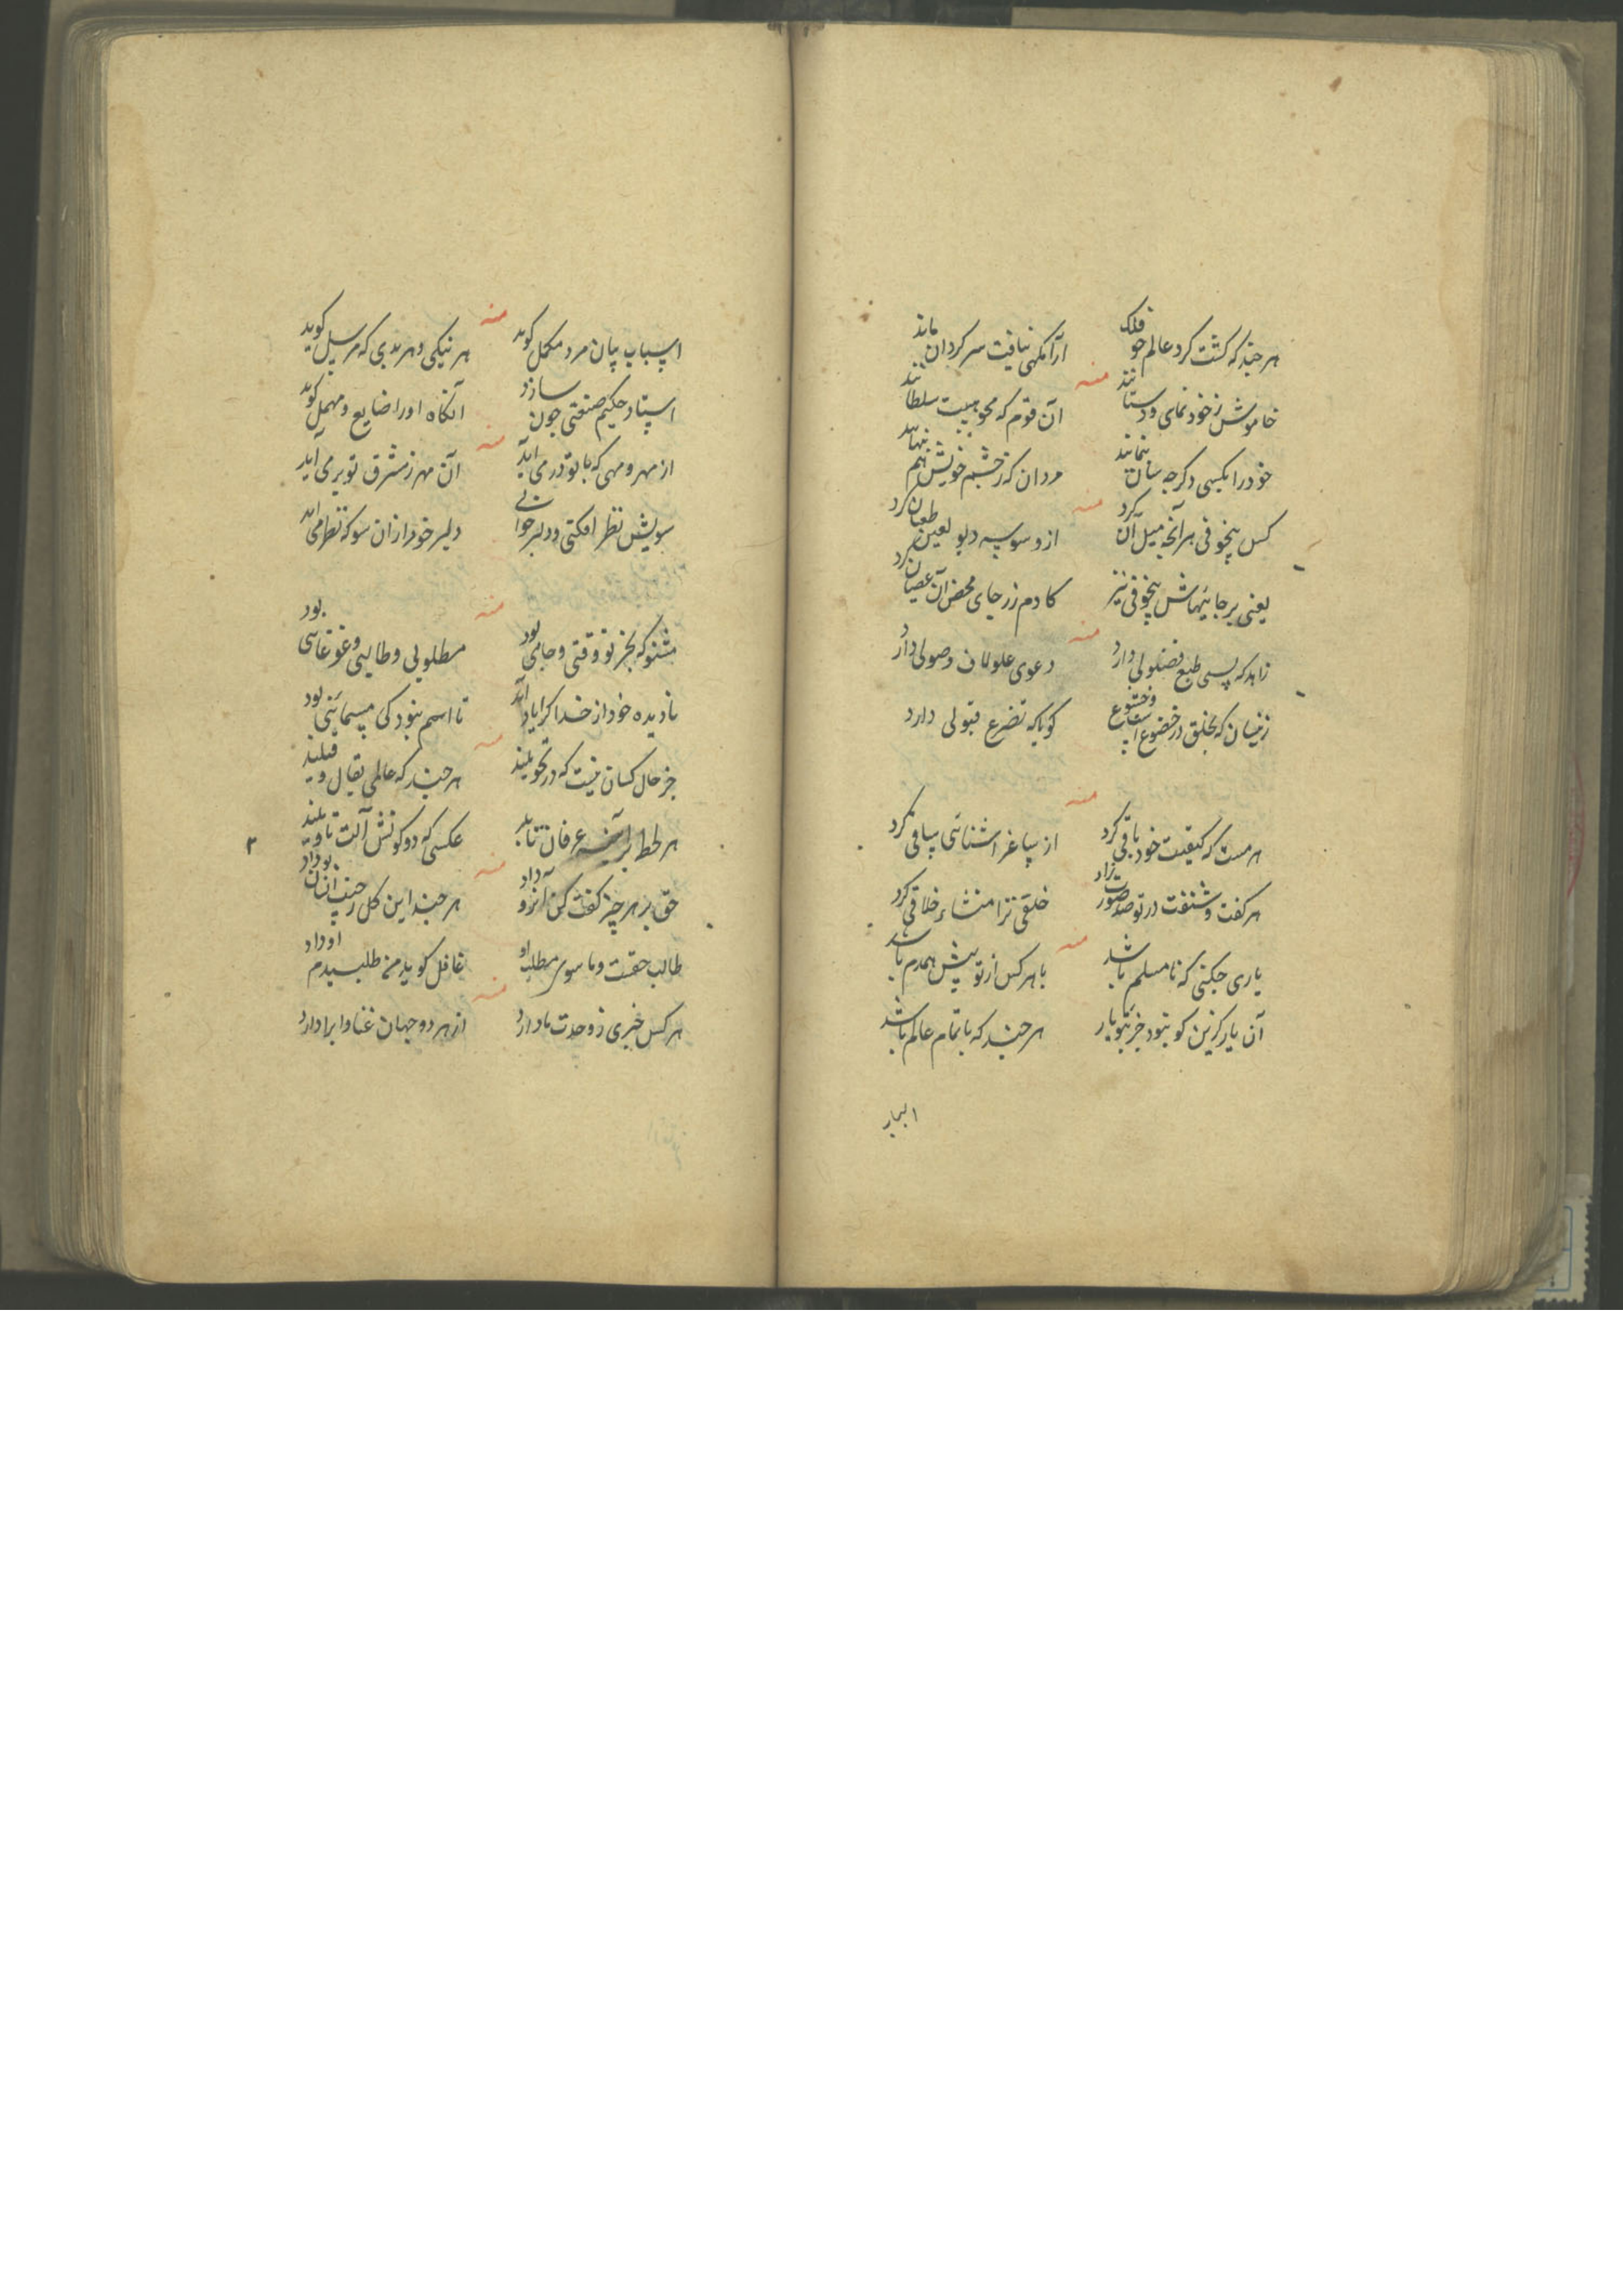 هر چند که گشت گرد عالم چو فلک
آرامگهی نیافت سرگردان ماند
منه
خاموش ز خود نمای و دستانند
آن قوم که محو هیبت سلطانند
خود را بکسی دگر چه سان بنمایند
مردان که ز چشم خویش هم پنهانند
منه
کس بیخوفی هر آنچه میل آن کرد
از وسوسه دیو لعین طغیان کرد
یعنی بر جاینهاش بیخوفی نیز
کادم ز رجای محض آن عصیان کرد
منه
زاهد که بسی طبع فضولی دارد
دعوی علو لاف وصولی دارد
زینسان که بخلق در خضوع است و خشوع
گویا که تضرع قبولی دارد
منه
هر مست که کیفیت خود باقی کرد
از ساغر آشنائی ساقی کرد
هر گفت و شنفت در تو صد صورت زاد
خلقی ترا منشاء خلاقی کرد
منه
یاری چکنی که نامسلم باشد
با هر کس از تو پیش همدم باشد
آن یار گزین کو نبود جز بتو یار
هر چند که با تمام عالم باشد
اسباب
اسباب بیان مرد مکمل گوید
هر نیکی و هر بدی که مرسل گوید
منه
استاد حکیم صنعتی چون سازد
آنگاه اورا ضایع و مهمل گوید
از مهر و مهی که با تو در می آید
آن مهر ز شرق تو بر می آید
منه
سویش نظر افکنی و دلبر خوانی
دلبر خود از آن سو که نظر می آید
مشنو که بجز تو وقتی و جامی بود
مطلوبی و طالبی و غوغائی بود
منه
نادیده خود از خدا گرت یاد آید
تا اسم نبود کی مسمائی بود
جز حال کسان نیست که در تحویلند
هر چند که عالمی بقال و قیلند
منه
هر لحظه بر آئینه عرفان تابد
عکسی که دو کونش آلت تاویلند
حق بر هر چیز گفت کن آنرو داد
هر چند این کل
منه
طالب حقست و ما سوی مطلب او
غافل گوید من طلبیدم او داد
هر کس خبری ز وحدت ما دارد
از هر دو جهان غنا و ابرا دارد
منه
۳